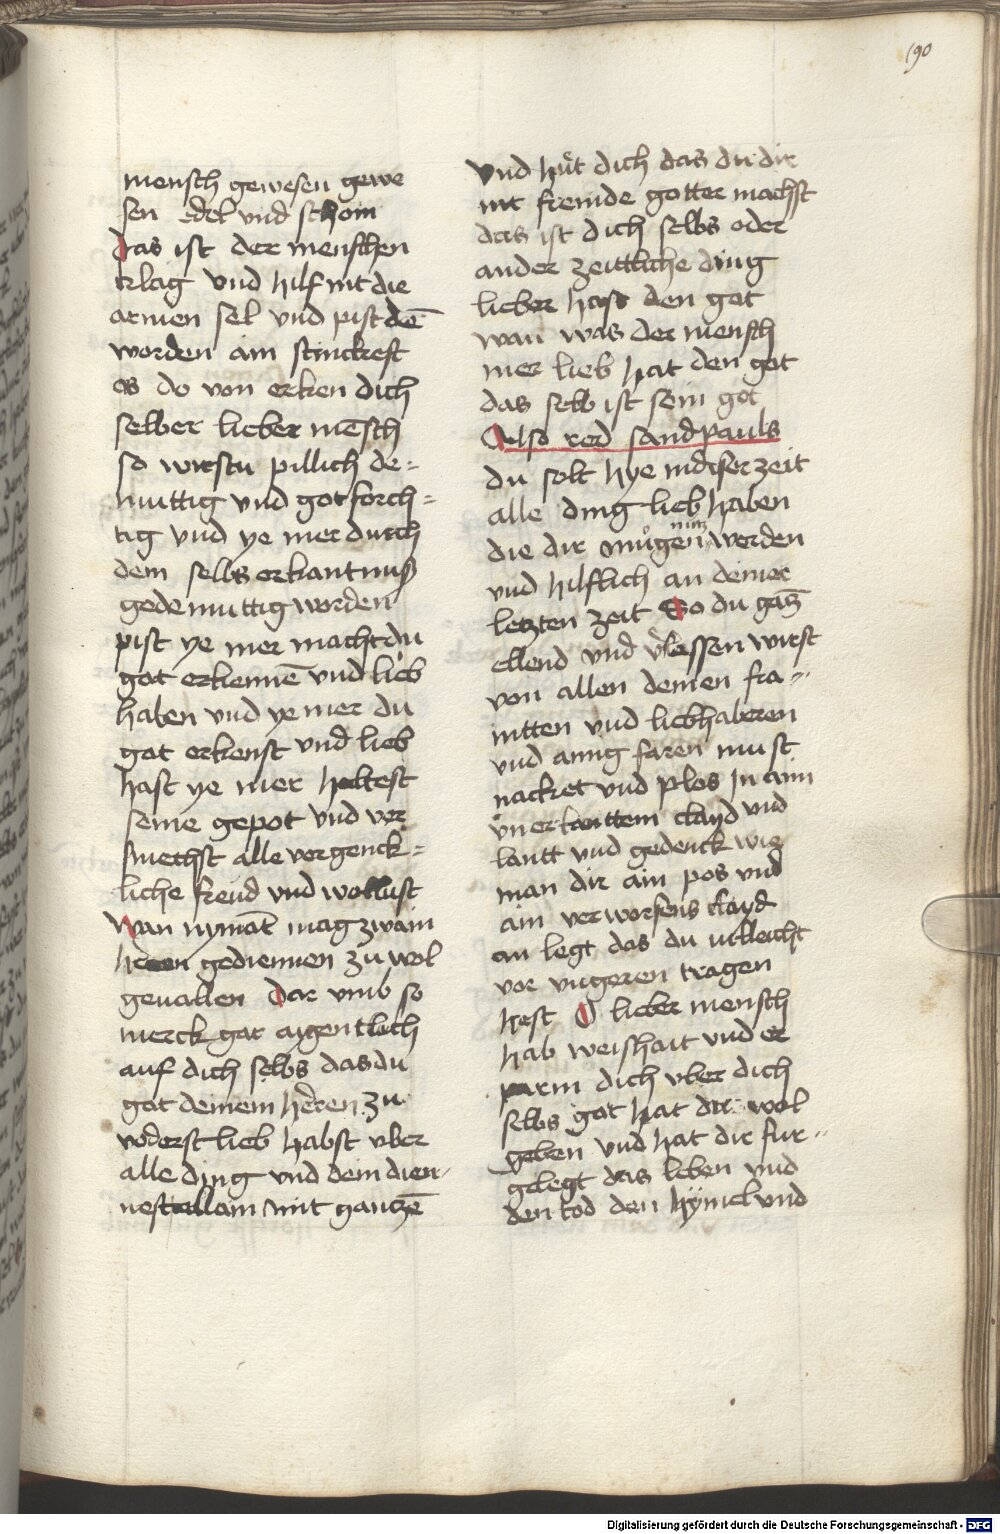 190
mensch gewesen gewe
sen edel vnd schoin
das ist der menschen
klag vnd hilf nit die
armen sel vnd pist dē
worden ain stinckest
os do von erken dich
selber lieber mēsch
so wirstu pillich de=
muttig vnd gotforch=
tig vnd ye mer durch
dein selbs erkantnuß
gedemuttig worden
pist ye mer macht du
got erkennē vnd lieb
haben vnd ye mer du
got erkenst vnd lieb
hast ye mer heltest
seine gepot vnd ver
smechst alle vergenck=
liche freud vnd wollust
wan nymāt mag zwain
heren gediennen zu wol
geuallen Dar vmb so
merck gar aygentlich
auf dich selbs das du
got deinem heren zu
voderst lieb habst vber
alle ding vnd dem dien-
nest allain mit gantzē
vnd hüt dich das du dir
nit fremde gotter machst
das ist dich selbs oder
ander zeittliche ding
lieber hast den got
wan was der mensch
mer lieb hat den got
das selb ist sein got
Also red sand pauls
du solt hye in diser zeit
alle ding lieb haben
die dir mügen nüz werden
vnd hilflich an deiner
letzten zeit So du gāz
ellend vnd v̄lassen wirst
von allen deinen fra-
intten vnd liebhaberen
vnd ainig faren must
nacket vnd plos in ain
vnerkanttem clayd vnd
lantt vnd gedenck wie
man dir ain pos vnd
ain verworfens clayd
an legt das du villeicht
vor vngeren tragen
hest O lieber mensch
hab weishait vnd er
parm dich vber dich
selbs got hat dir wol
geben vnd hat dir fur-
gelegt das leben vnd
den tod den hymel vnd
Digitalisierung gefördert durch die Deutsche Forschungsgemeinschaft - DFG